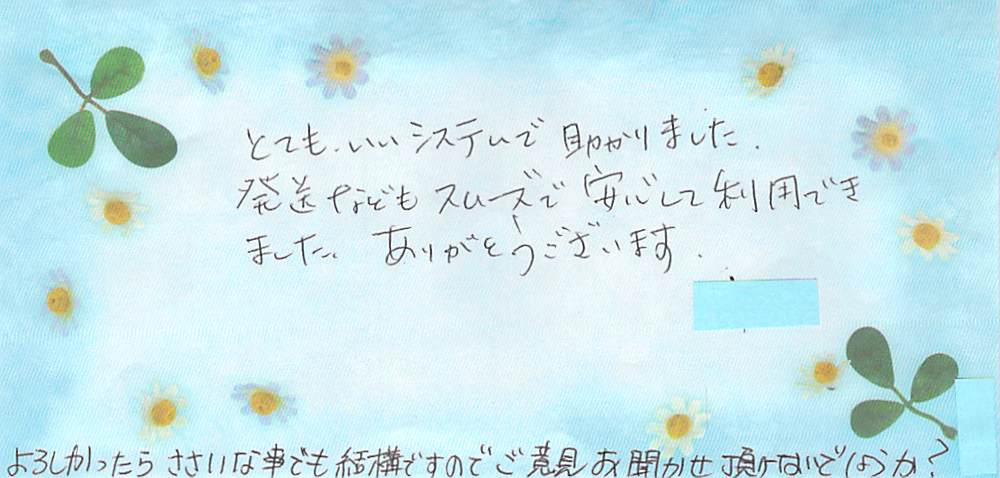 とても、いいシステムで助かりました.
発送などもスムーズで安心して利用でき
ました. ありがとうございます.
よろしかったらささいな事でも結構ですのでご意見お聞かせ頂けないでしょうか?